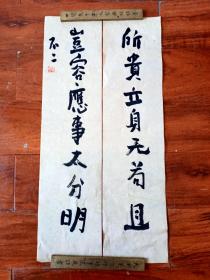 所贵立身无苟且
岂容应事太分明
不二